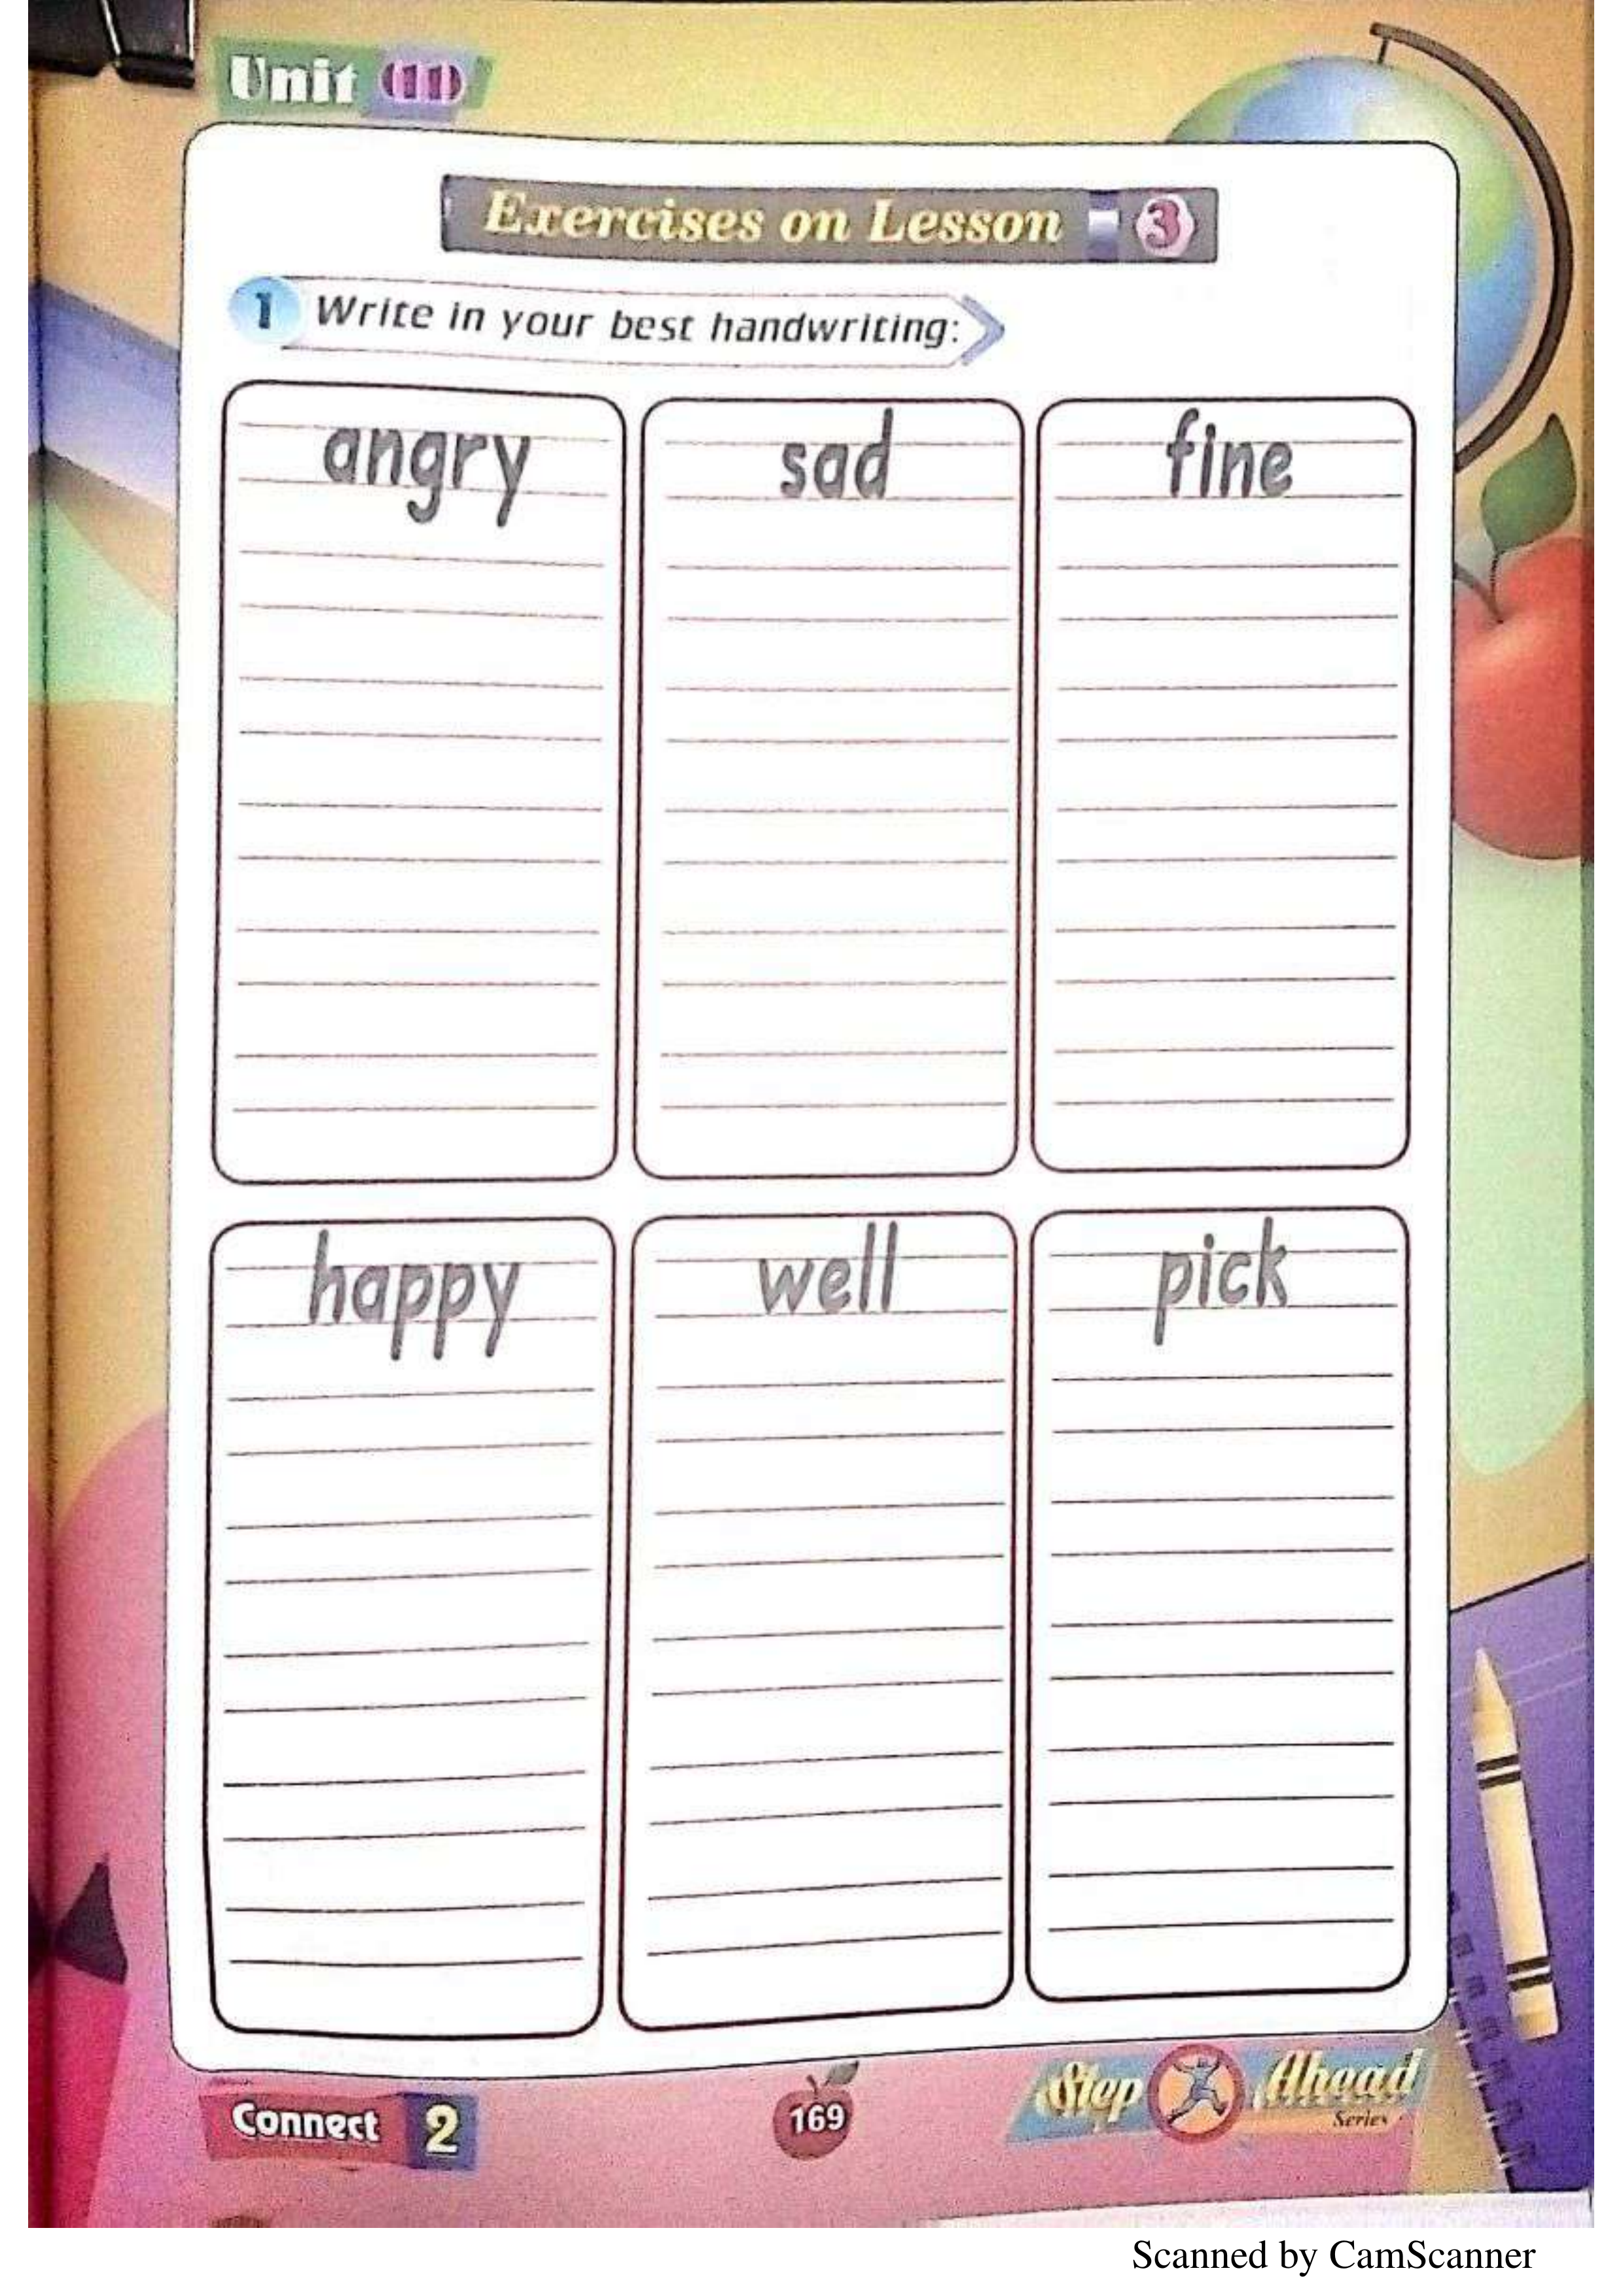 Unit (11)
Exercises on Lesson 3
1 Write in your best handwriting:
angry sad fine
happy well pick
Connect 2
169
Step Ahead
Series
Scanned by CamScanner